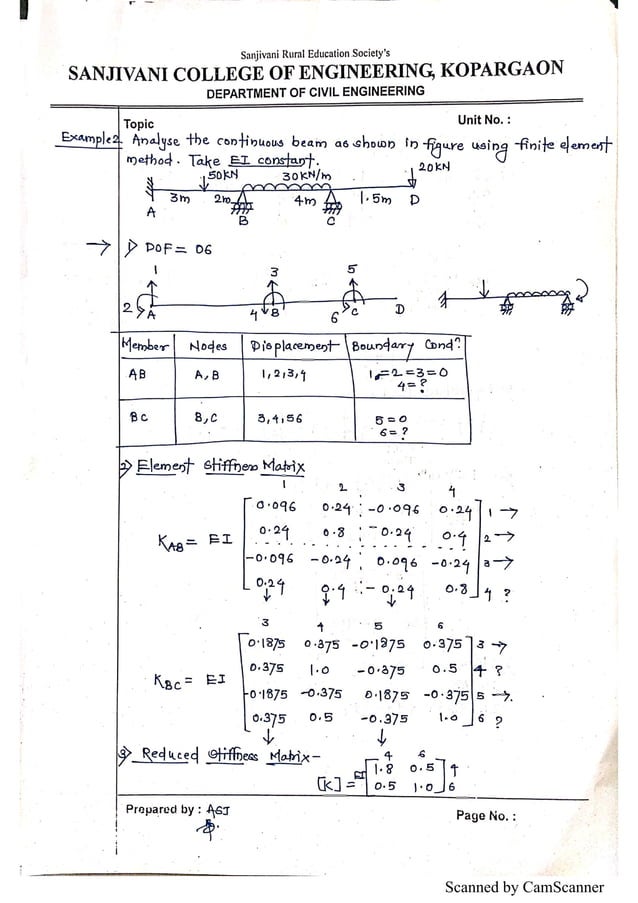 Sanjivani Rural Education Society's
SANJIVANI COLLEGE OF ENGINEERING, KOPARGAON
DEPARTMENT OF CIVIL ENGINEERING
Topic Unit No. :
Example 2. Analyse the continuous beam as shown in figure using finite element
method. Take EI constant.
50KN 30KN/m 20KN
3m 2m 4m 1.5m D
A B C
→ 1) DOF = 06
1 3 5
2 A 4 B 6 C D
Member Nodes Displacement Boundary Condn
AB A, B 1,2,3,4 1=2=3=0
4=?
BC B,C 3,4,56 5=0
6=?
2) Element Stiffness Matrix
1 2 3 4
0.096 0.24 -0.096 0.24 1 →
KAB = EI 0.24 0.8 -0.24 0.4 2 →
-0.096 -0.24 0.096 -0.24 3 →
0.24 0.4 -0.24 0.8 4 ?
3 4 5 6
0.1875 0.375 -0.1875 0.375 3 →
KBC = EI 0.375 1.0 -0.375 0.5 4 ?
-0.1875 -0.375 0.1875 -0.375 5 →
0.375 0.5 -0.375 1.0 6 ?
3) Reduced Stiffness Matrix-
4 6
[K] = EI 1.8 0.5 4
0.5 1.0 6
Prepared by : ASJ Page No. :
Scanned by CamScanner